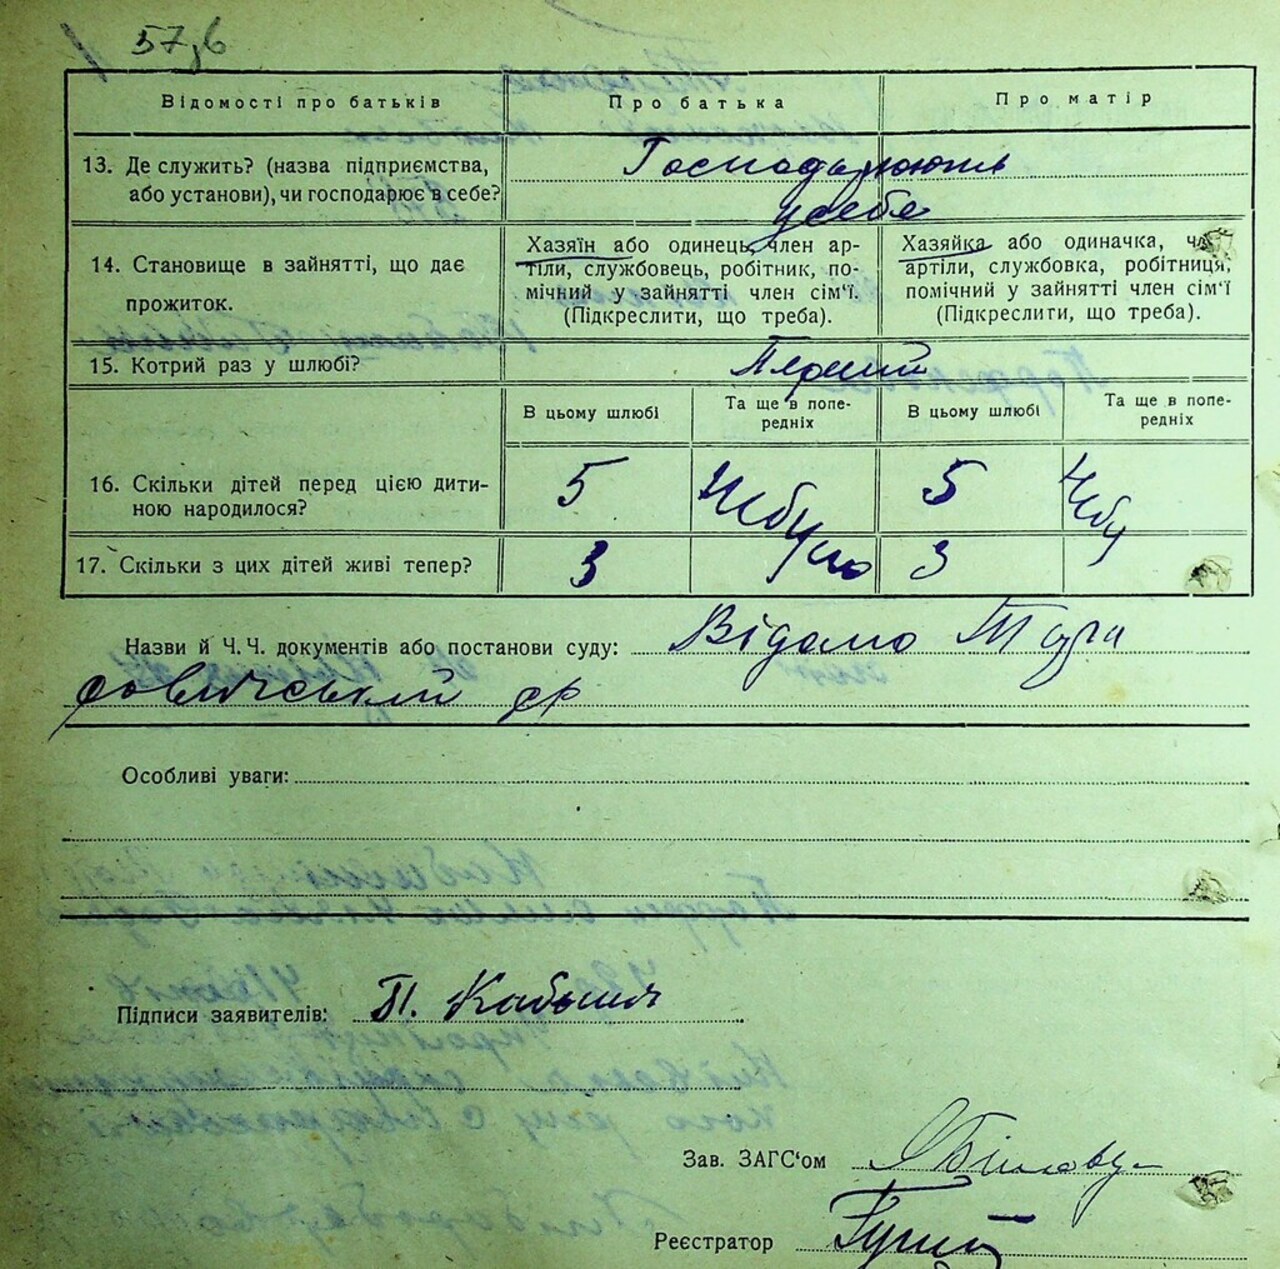 57,6
Відомості про батьків Про батька Про матір
13. Де служить? (назва підприємства, або установи), чи господарює в себе? Господарюють
у себе
14. Становище в зайнятті, що дає прожиток.
Хазяїн або одинець, член ар-
тіли, службовець, робітник, по-
мічний у зайнятті член сім‘ї.
(Підкреслити, що треба).
Хазяйка або одиначка, чл
артіли, службовка, робітниця,
помічний у зайнятті член сім‘ї
(Підкреслити, що треба).
15. Котрий раз у шлюбі? Перший
В цьому шлюбі Та ще в попе-
редніх В цьому шлюбі Та ще в попе-
редніх
16. Скільки дітей перед цією дити-
ною народилося? 5 Небуло 5 Небу
17. Скільки з цих дітей живі тепер? 3 3
Назви й Ч.Ч. документів або постанови суду: Відомо
Особливі уваги:
Підписи заявителів: П. Кабиш
Зав. ЗАГС‘ом
Реєстратор